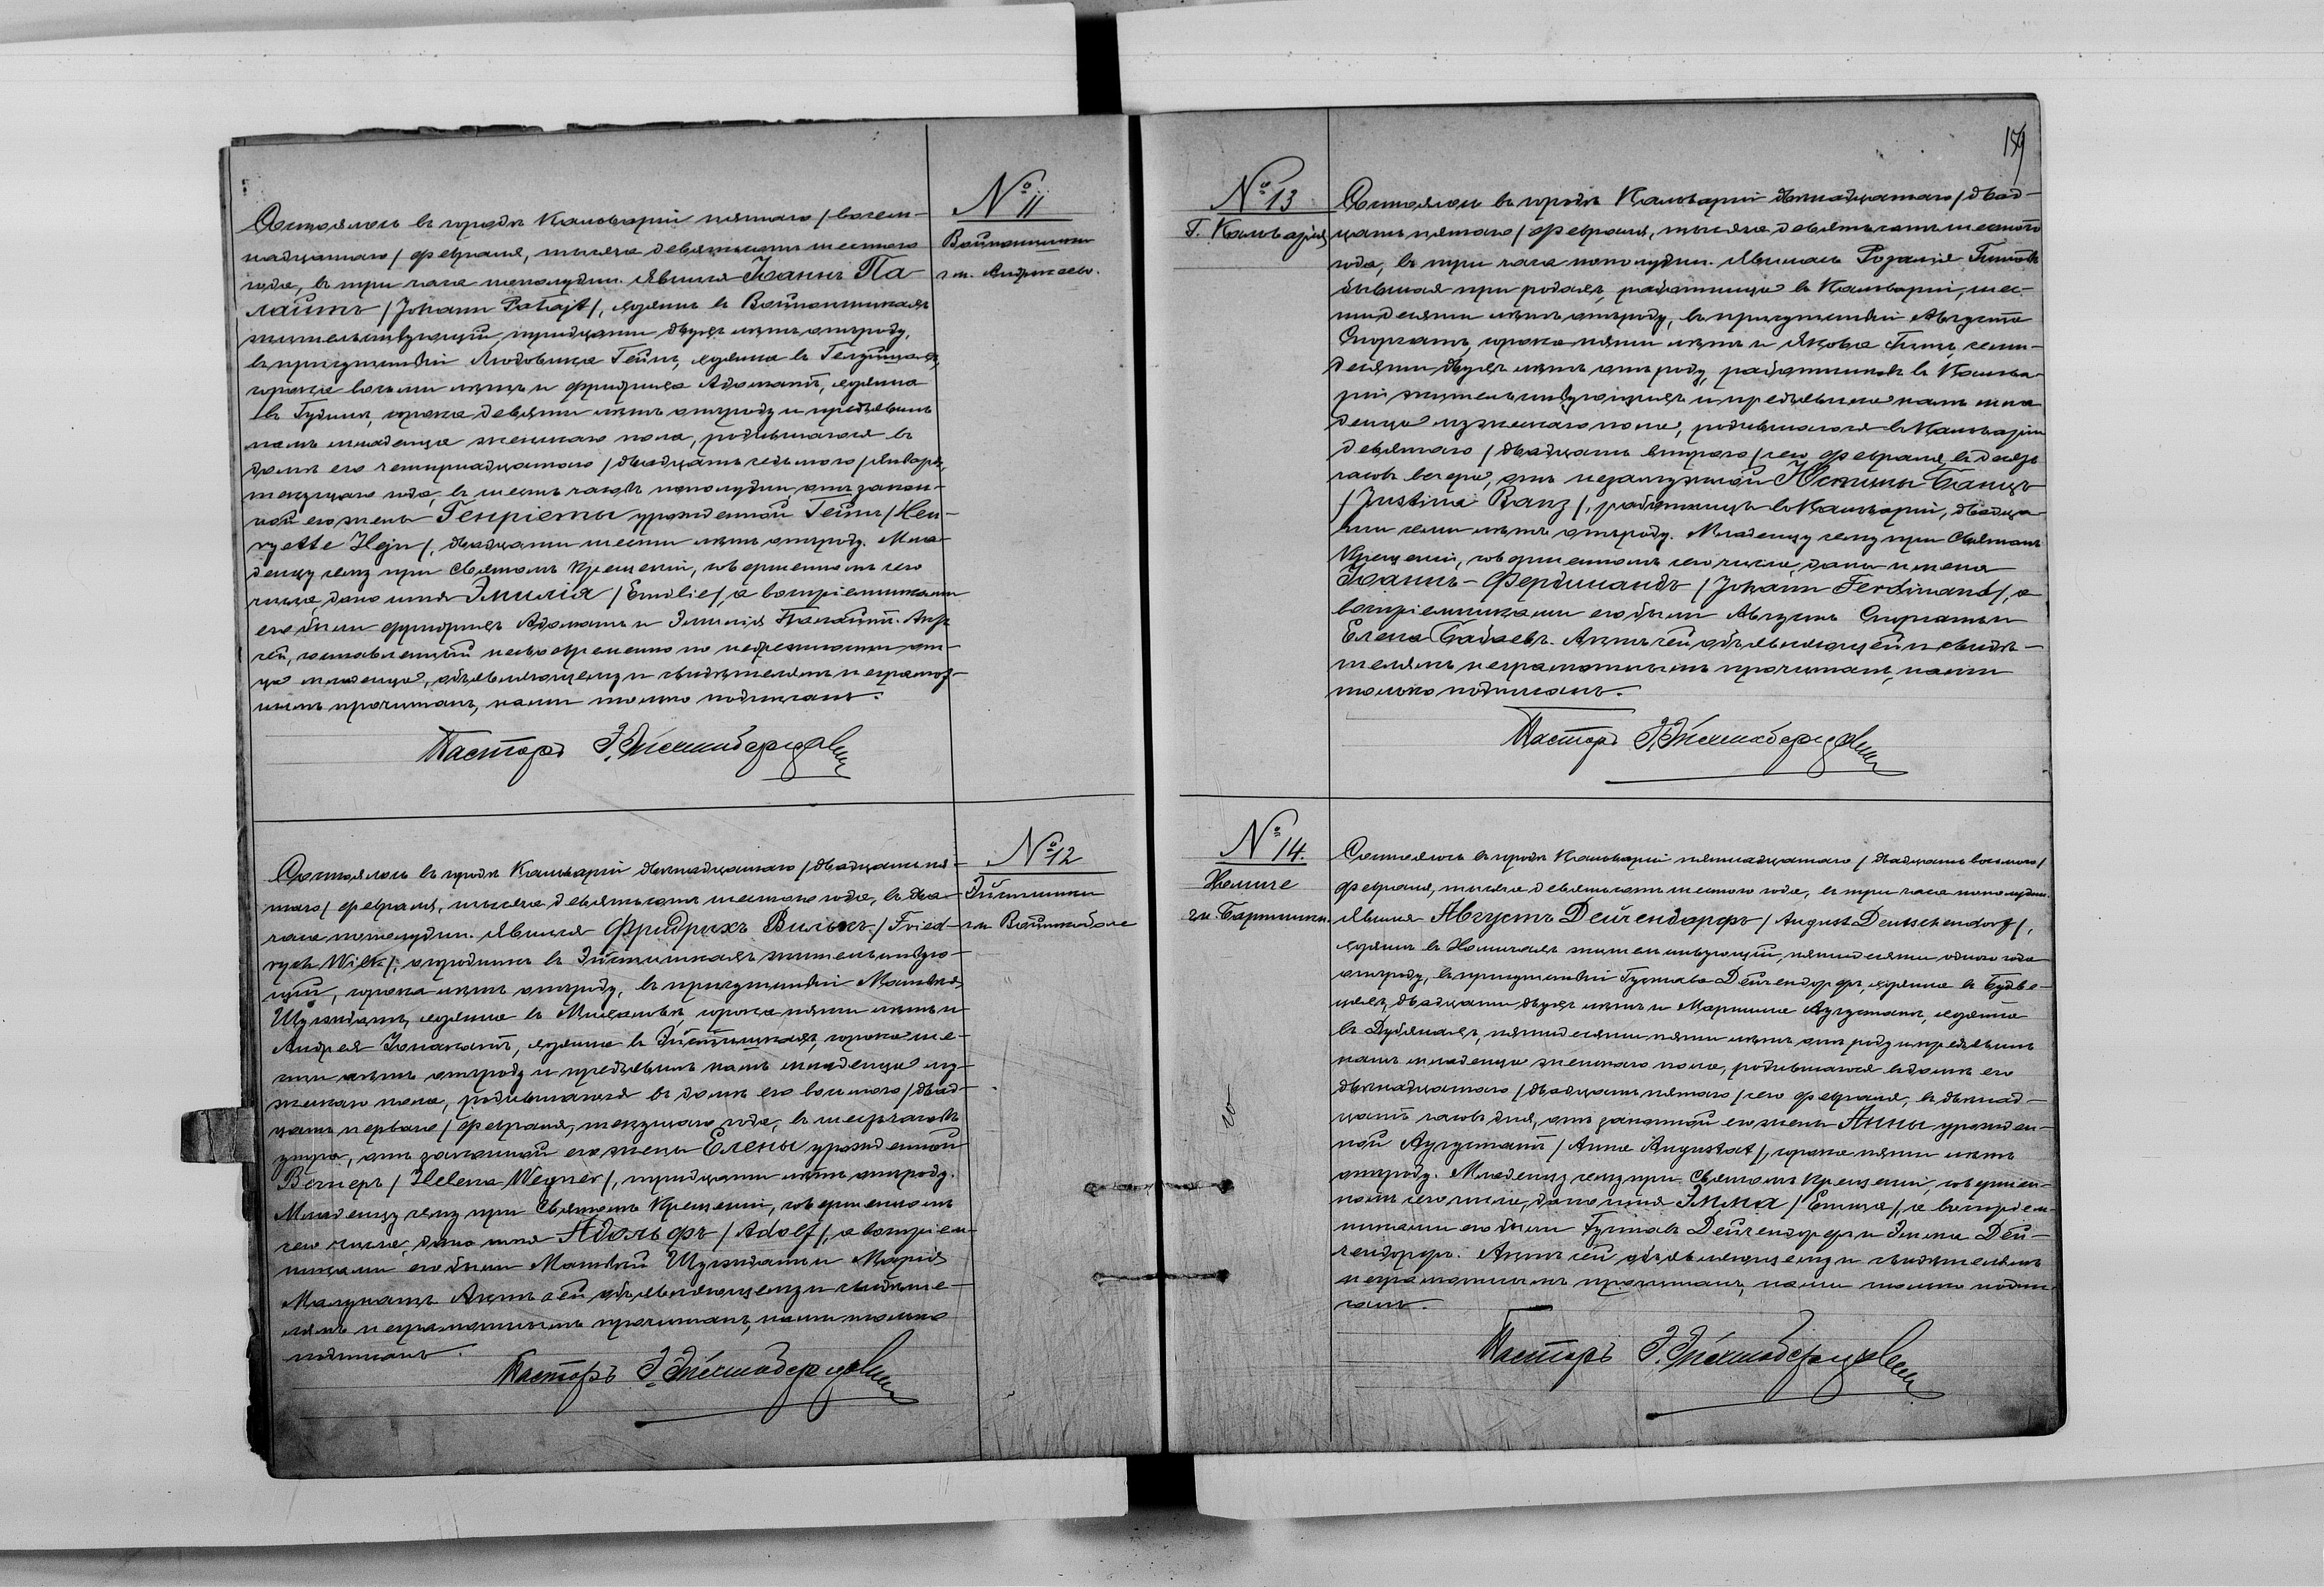 № 11
Войпонишки
гм. Андржеево.
Состоялось въ городѣ Кальваріи пятаго /восем-
надцатаго/ февраля, тысяча девятьсотъ шестого
года, въ три часа пополудни. Явился Іоаннъ Па-
лайтъ /Johann Palajt/, хозяинъ въ Войпонишкахъ
жительствующій, тридцати двухъ лѣтъ отъ роду,
въ присутствіи Людовика Гейнъ, хозяина въ
сорока восьми лѣтъ и Фридриха Адоматъ, хозяина
въ сорока девяти лѣтъ отъ роду и предъявилъ
намъ младенца женскаго пола, родившагося въ
домѣ его четырнадцатаго /двадцать седьмого/ января
текущаго года, въ шесть часовъ пополудни, отъ закон-
ной его жены Генріеты урожденной Гейнъ /Hen-
ryette Hejn/, двадцати шести лѣтъ отъ роду. Мла-
денцу сему при Святомъ Крещеніи, совершенномъ сего
числа, дано имя Эмилія /Emilie/, а воспріемниками
его были Фридрихъ Адоматъ и Эмилія Палайтъ. Актъ
сей, составленный несвоевременно по небрежности от-
ца младенца, объявляющему и свидѣтелямъ неграмот-
нымъ прочитанъ, нами только подписанъ.
Пасторъ
№ 12
гм. Войткобole
Состоялось въ городѣ Кальваріи двѣнадцатаго /двадцать пя-
таго/ февраля, тысяча девятьсотъ шестого года, въ два
часа пополудни. Явился Фридрихъ Вилькъ /Fried-
rych Wilk/, огородникъ въ жительствую-
щій, сорока лѣтъ отъ роду, въ присутствіи Матвѣя
хозяина въ сорока пяти лѣтъ и
Андрея хозяина въ сорока ше-
сти лѣтъ отъ роду и предъявилъ намъ младенца му-
жескаго пола, родившагося въ домѣ его восьмого /двад-
цать перваго/ февраля, текущаго года, въ шесть часовъ
утра, отъ законной его жены Елены урожденной
Вегнеръ /Helena Wegner/, тридцати лѣтъ отъ роду.
Младенцу сему при Святомъ Крещеніи, совершенномъ
сего числа, дано имя Адольфъ /Adolf/, а воспріем-
никами его были Матвѣй и Марія
Актъ сей объявляющему и свидѣте-
лямъ неграмотнымъ прочитанъ, нами только
подписанъ.
Пасторъ
№ 13
Г. Кальварія
Состоялось въ городѣ Кальваріи двѣнадцатаго /двад-
цать пятаго/ февраля, тысяча девятьсотъ шестого
года, въ три часа пополудни. Явилась Розалія
бывшая при родахъ, работница въ Кальваріи, шес-
тидесяти лѣтъ отъ роду, въ присутствіи Августа
сорока пяти лѣтъ и Якова семи-
десяти двухъ лѣтъ отъ роду, работниковъ въ Кальва-
ріи жительствующихъ и предъявила намъ мла-
денца мужескаго пола, родившагося въ Кальваріи
девятаго /двадцать второго/ сего февраля, въ десять
часовъ вечера, отъ незамужней Юстины Банцъ
/Justina Banz/, работницы въ Кальваріи, двадца-
ти семи лѣтъ отъ роду. Младенцу сему при Святомъ
Крещеніи, совершенномъ сего числа, даны имена
Іоаннъ-Фердинандъ /Johann Ferdinand/, а
воспріемниками его были Августъ и
Елена Актъ сей объявляющей и свидѣ-
телямъ неграмотнымъ прочитанъ, нами
только подписанъ.
Пасторъ
№ 14.
Состоялось въ городѣ Кальваріи пятнадцатаго /двадцать восьмого/
февраля, тысяча девятьсотъ шестого года, въ три часа пополудни.
Явился Августъ Дейчендорфъ /August Deutschendorf/,
хозяинъ въ жительствующій, пятидесяти одного года
отъ роду, въ присутствіи Густава Дейчендорфъ, хозяина въ
двадцати двухъ лѣтъ и Мартина Аугустатъ, хозяина
въ пятидесяти пяти лѣтъ отъ роду и предъявилъ
намъ младенца женскаго пола, родившагося въ домѣ его
двѣнадцатаго /двадцать пятаго/ сего февраля, въ двѣнад-
цать часовъ дня, отъ законной его жены Анны урожден-
ной Аугустатъ /Anna Augustat/, сорока пяти лѣтъ
отъ роду. Младенцу сему при Святомъ Крещеніи, совершен-
номъ сего числа, дано имя Эмма /Emma/, а воспріем-
никами его были Густавъ Дейчендорфъ и Эмма Дей-
чендорфъ. Актъ сей объявляющему и свидѣтелямъ
неграмотнымъ прочитанъ, нами только подпи-
санъ.
Пасторъ